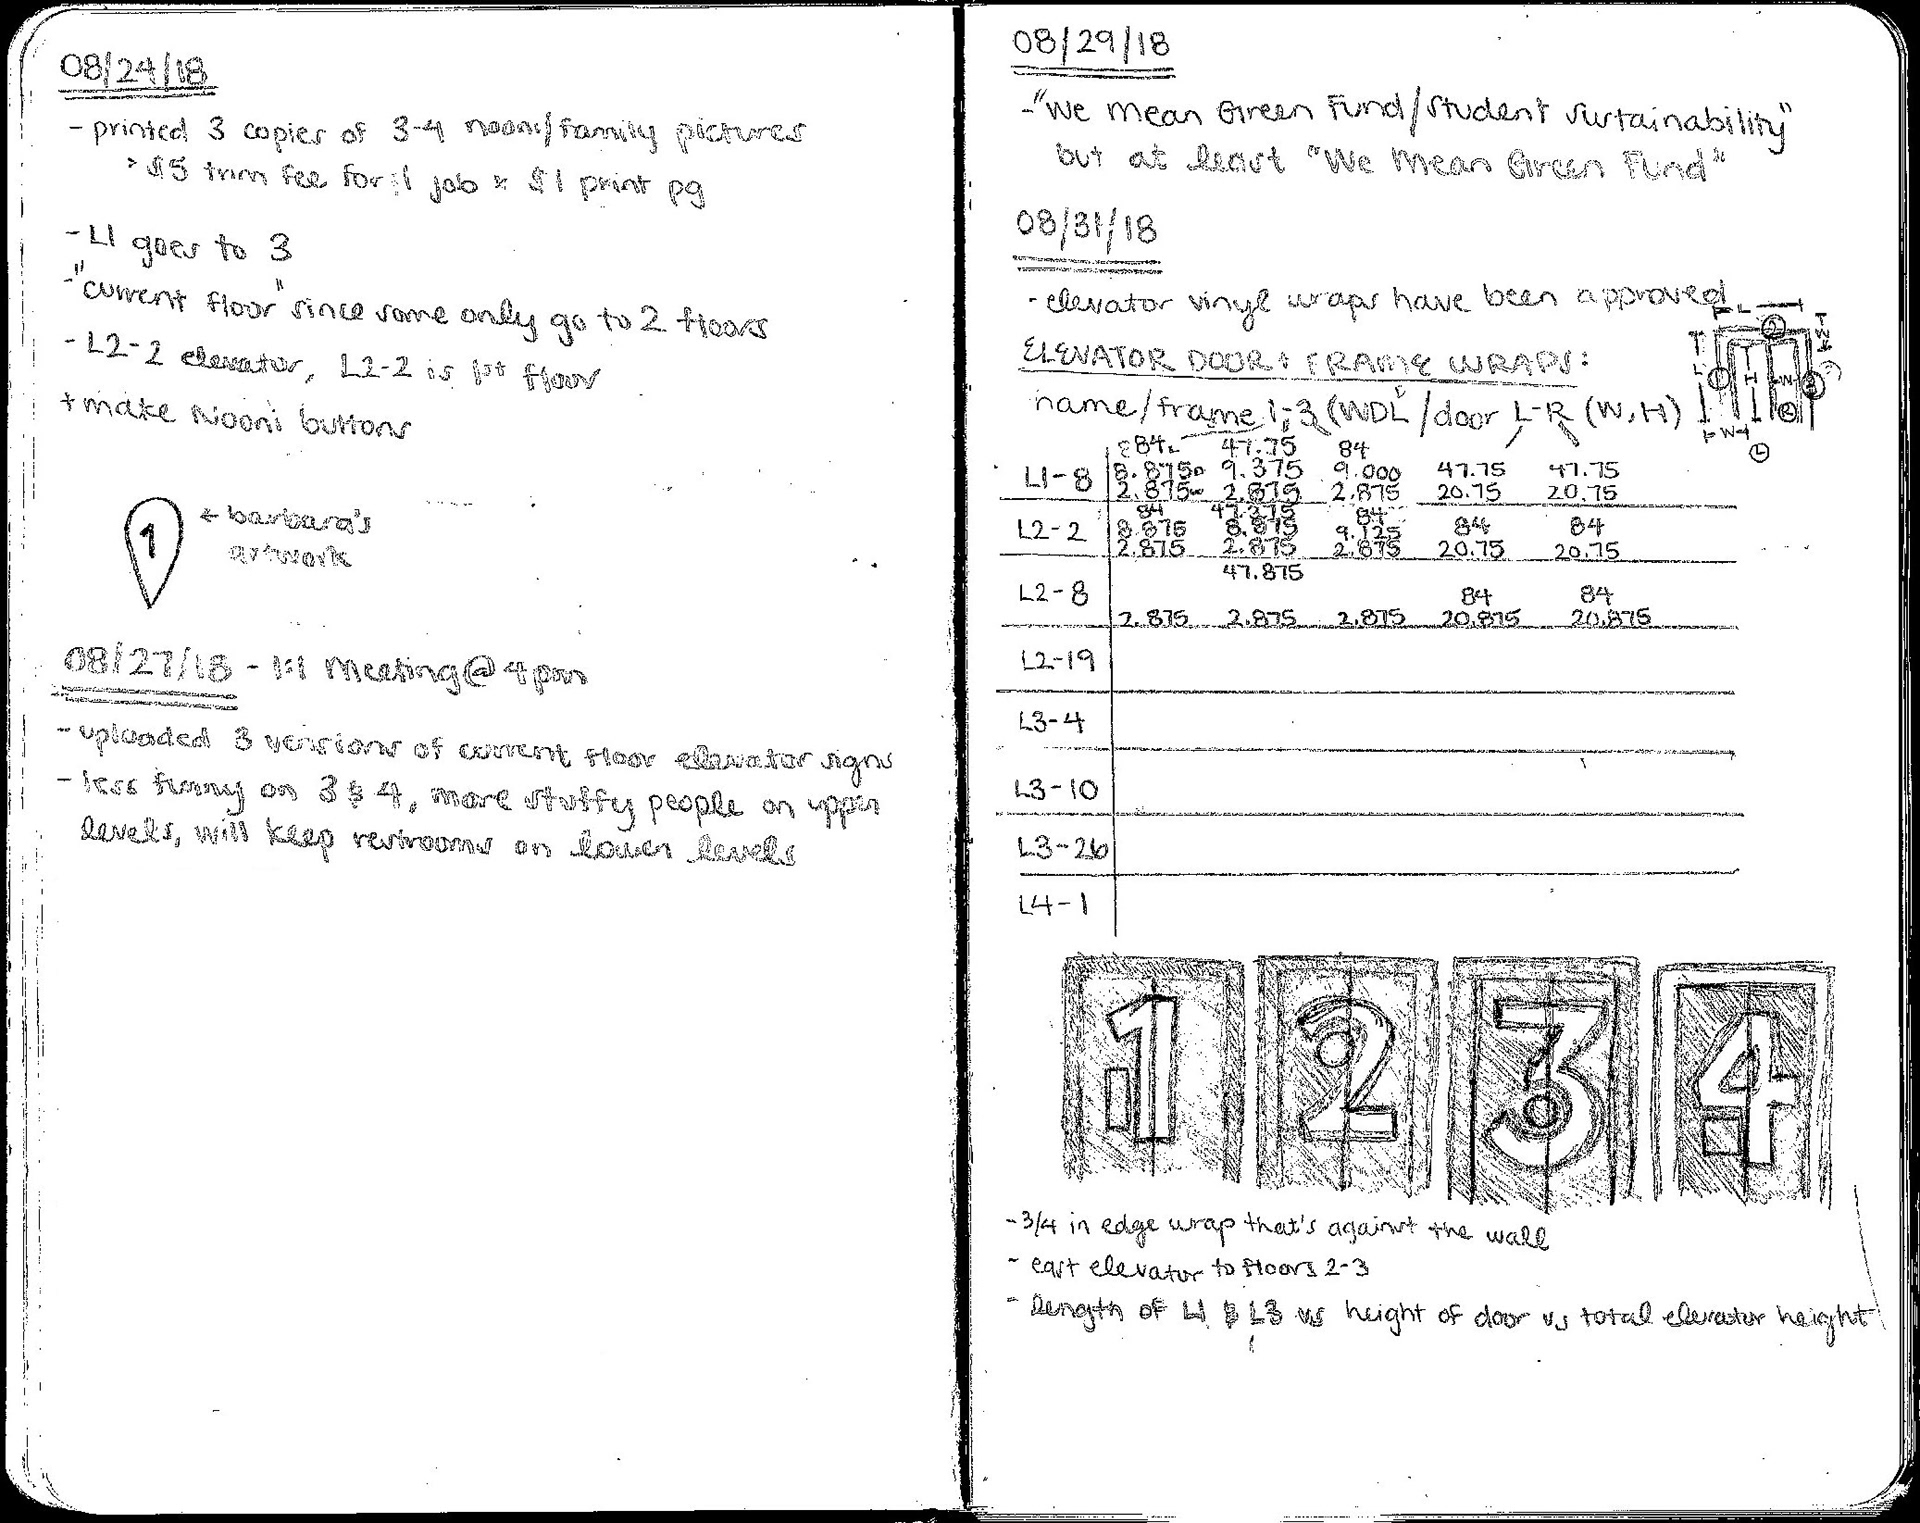 08/24/18
- printed 3 copies of 3-4 nooni/family pictures
> $5 trim fee for 1 job * $1 print pg
- L1 goes to 3
- "current floor" since some only go to 2 floors
- L2-2 elevator, L2-2 is 1st floor
+ make Nooni buttons
1
← barbara's
artwork
08/27/18 - 1:1 Meeting @ 4pm
- uploaded 3 versions of current floor elevator signs
- less funny on 3 & 4, more stuffy people on upper
levels, will keep restrooms on lower levels
08/29/18
- "We Mean Green Fund/Student Sustainability"
but at least "We Mean Green Fund"
08/31/18
- elevator vinyl wraps have been approved
ELEVATOR DOOR + FRAME WRAPS:
name/frame 1-3 (WDL/door L-R (W,H)
84 47.75 84
L1-8 8.875 9.375 9.000 47.75 47.75
2.875 2.875 2.875 20.75 20.75
84 47.375 84
L2-2 8.875 8.875 9.125 84 84
2.875 2.875 2.875 20.75 20.75
47.875
L2-8 84 84
2.875 2.875 2.875 20.875 20.875
L2-19
L3-4
L3-10
L3-26
L4-1
1 2 3 4
- 3/4 in edge wrap that's against the wall
- east elevator to floors 2-3
- length of L1 & L3 vs height of door vs total elevator height